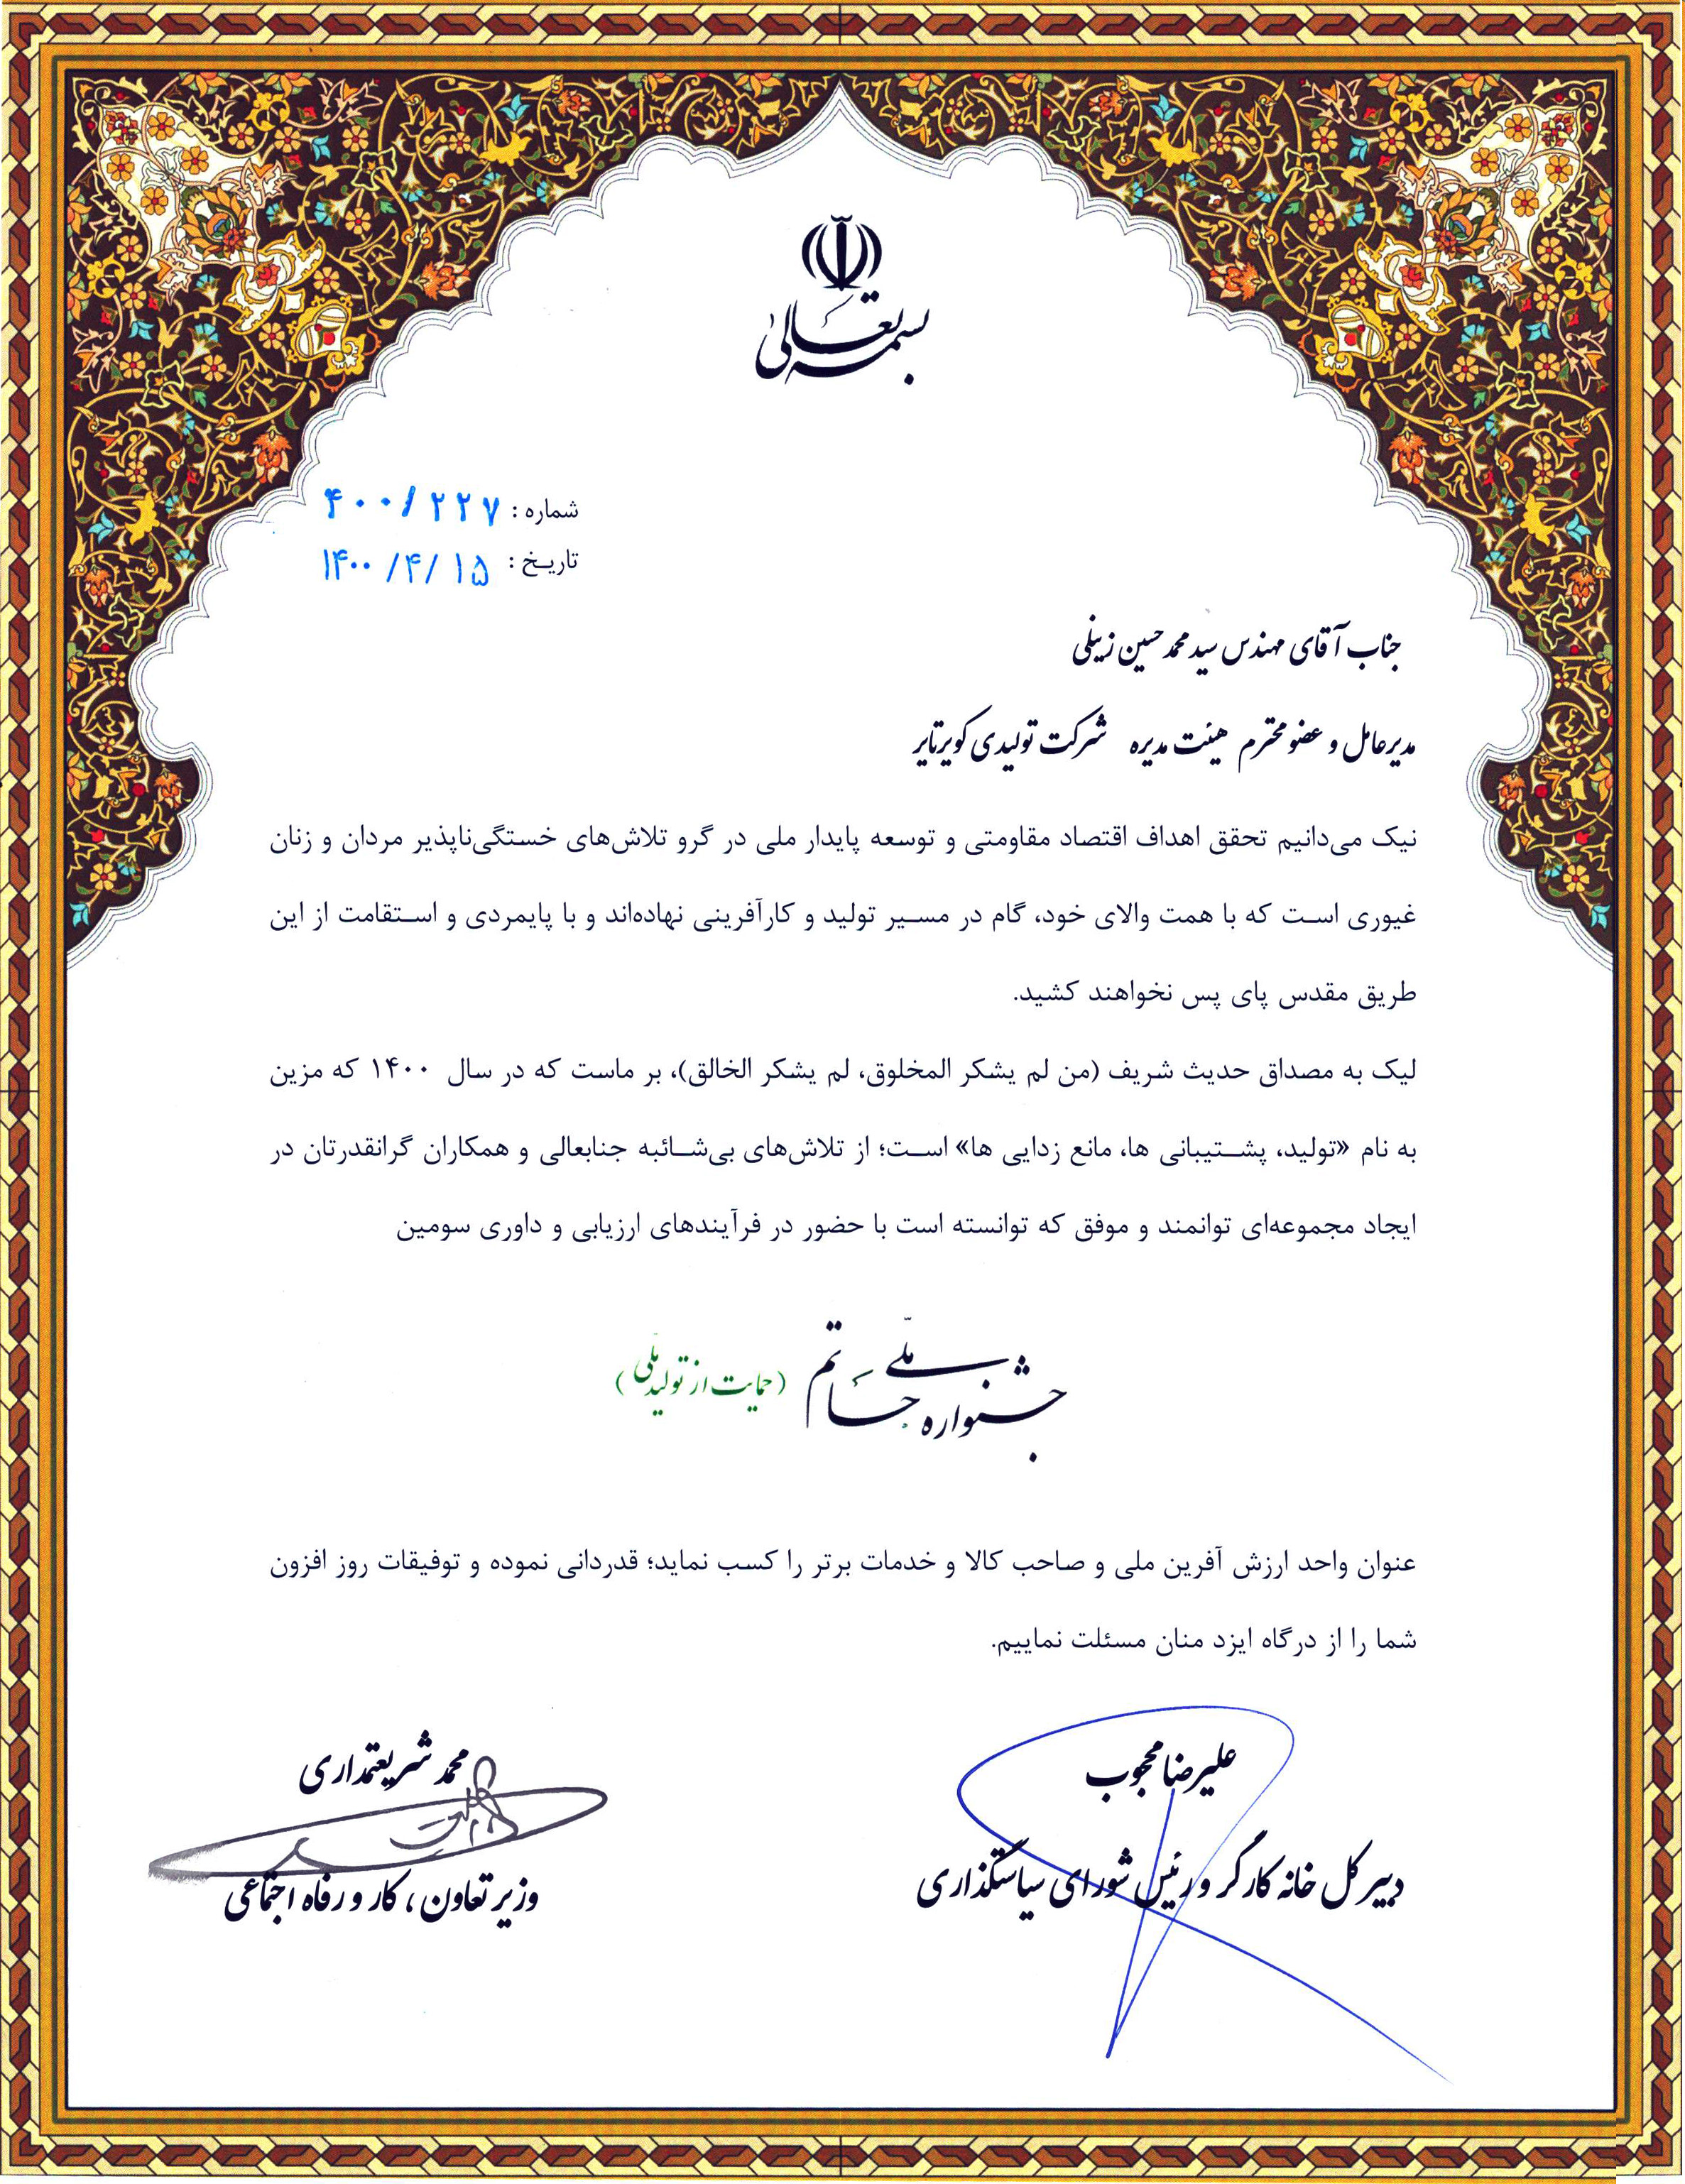 بسمه تعالی
شماره : ۴۰۰/۲۲۷
تاریخ : ۱۴۰۰/۴/۱۵
جناب آقای مهندس سید محمد حسین زینلی
مدیرعامل و عضو محترم هیئت مدیره شرکت تولیدی کویرتایر
نیک می‌دانیم تحقق اهداف اقتصاد مقاومتی و توسعه پایدار ملی در گرو تلاش‌های خستگی‌ناپذیر مردان و زنان
غیوری است که با همت والای خود، گام در مسیر تولید و کارآفرینی نهاده‌اند و با پایمردی و استقامت از این
طریق مقدس پای پس نخواهند کشید.
لیک به مصداق حدیث شریف (من لم یشکر المخلوق، لم یشکر الخالق)، بر ماست که در سال ۱۴۰۰ که مزین
به نام «تولید، پشتیبانی ها، مانع زدایی ها» است؛ از تلاش‌های بی‌شائبه جنابعالی و همکاران گرانقدرتان در
ایجاد مجموعه‌ای توانمند و موفق که توانسته است با حضور در فرآیندهای ارزیابی و داوری سومین
جشنواره ملّی حاتم (حمایت از تولید ملّی)
عنوان واحد ارزش آفرین ملی و صاحب کالا و خدمات برتر را کسب نماید؛ قدردانی نموده و توفیقات روز افزون
شما را از درگاه ایزد منان مسئلت نماییم.
علیرضا محجوب
دبیر کل خانه کارگر و رئیس شورای سیاستگذاری
محمد شریعتمداری
وزیر تعاون ، کار و رفاه اجتماعی